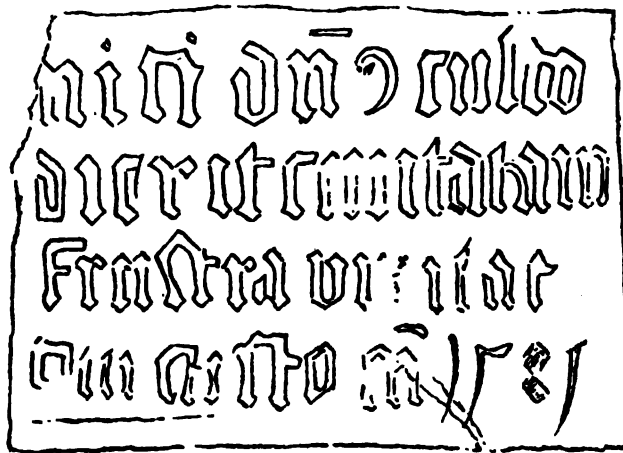 nisi dn̄ꝰ custo
dierit ciuitatam
Frustra vigilat
qui custo m̄ 1581